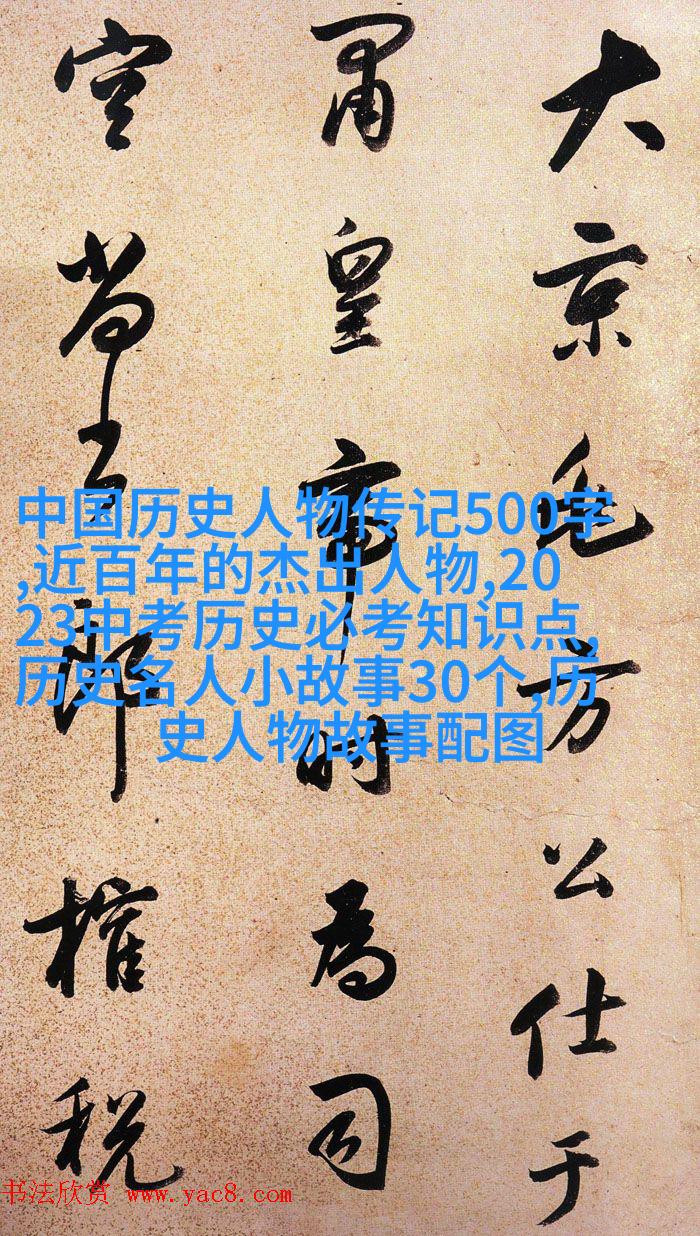 大京公仕于
肅皇帝時為司
空尚書郎榷税
中国历史人物传记500字
,近百年的杰出人物,20
23中考历史必考知识点,
历史名人小故事30个,历
史人物故事配图
书法欣赏 www.yac8.com